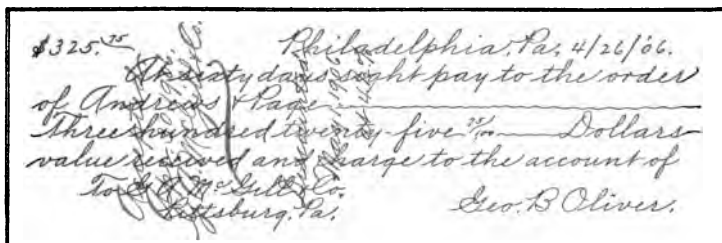 $325.75 Philadelphia, Pa, 4/26/06.
At sixty days sight pay to the order
of Andrews & Page
Three hundred twenty-five 75/100 Dollars
value received and charge to the account of
To G. A. McGill & Co.
Pittsburg, Pa. Geo. B Oliver.
Accepted